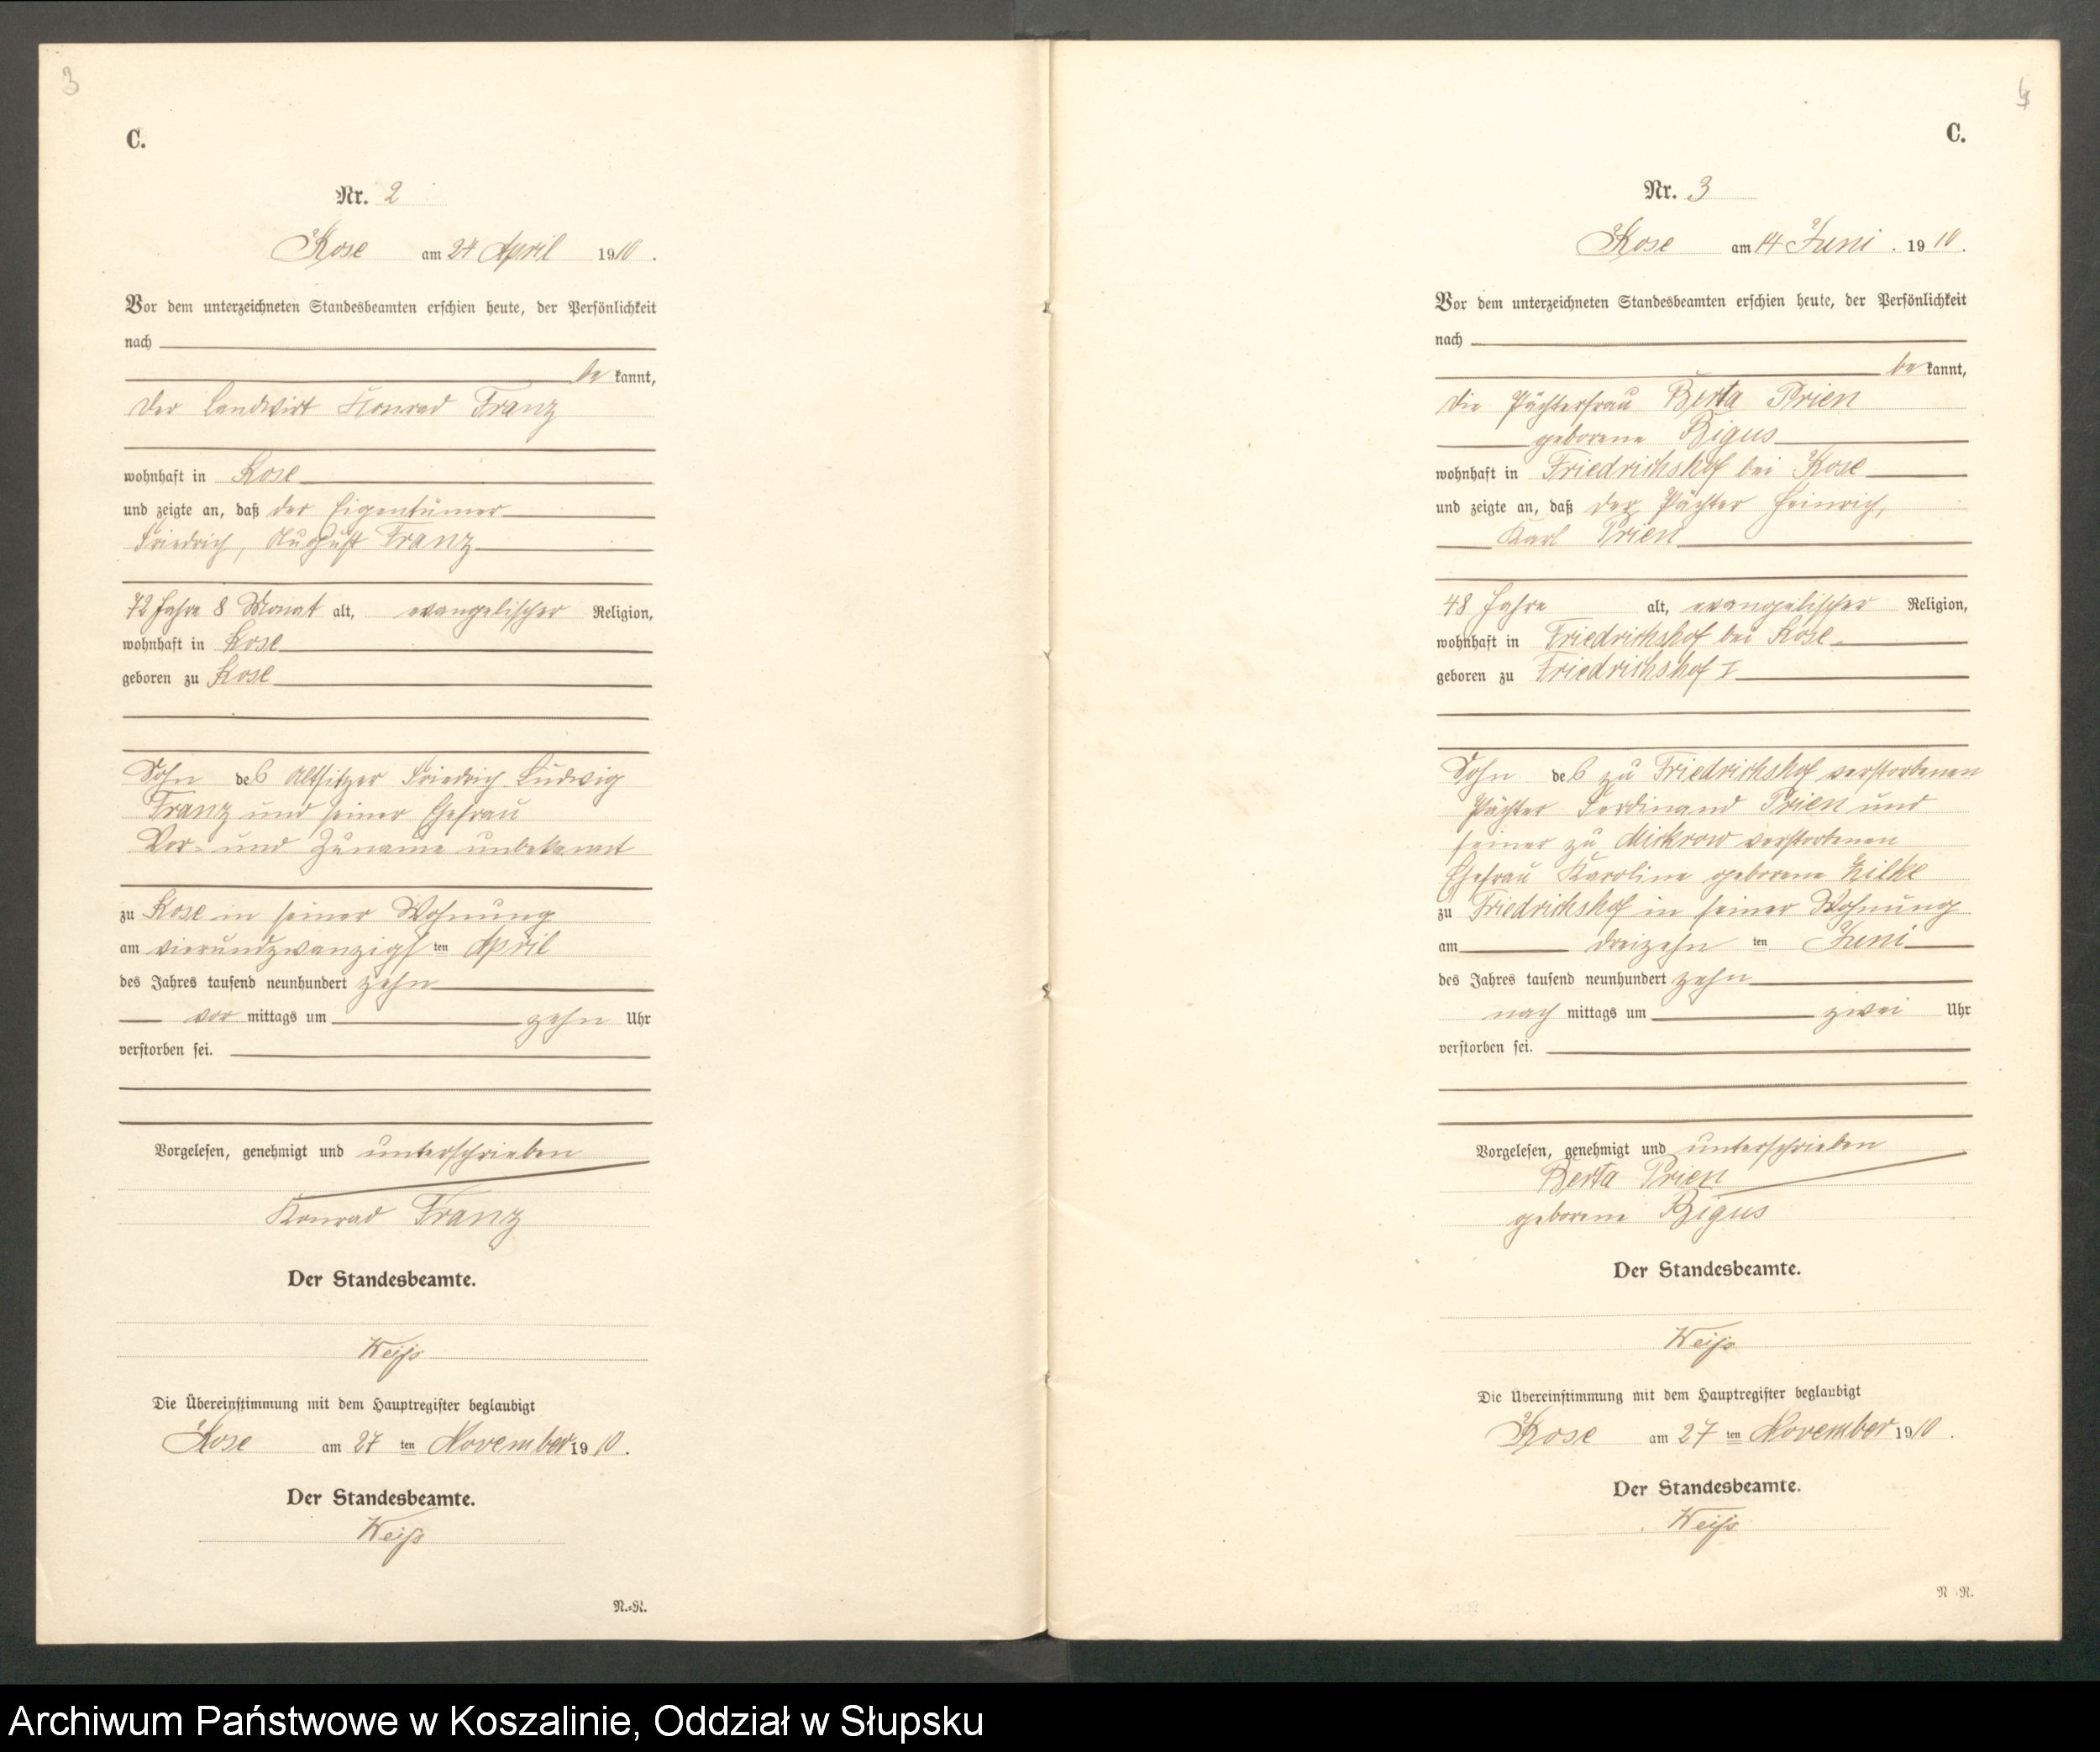 3
C.
Nr. 2
Kose am 24 April 1910.
Vor dem unterzeichneten Standesbeamten erschien heute, der Persönlichkeit
nach
be kannt,
der Landwirt Konrad Franz
wohnhaft in Kose
und zeigte an, daß der Eigentümer
Friedrich, August Franz
72 Jahre 8 Monat alt, evangelischer Religion,
wohnhaft in Kose
geboren zu Kose
Sohn des Altsitzer Friedrich Ludwig
Franz und seiner Ehefrau
Vor- und Zuname unbekannt
zu Kose in seiner Wohnung
am vierundzwanzigs ten April
des Jahres tausend neunhundert zehn
vor mittags um zehn Uhr
verstorben sei.
Vorgelesen, genehmigt und unterschrieben
Konrad Franz
Der Standesbeamte.
Weiß
Die Übereinstimmung mit dem Hauptregister beglaubigt
Kose am 27 ten November 1910.
Der Standesbeamte.
Weiß
N.=R.
4
C.
Nr. 3
Kose am 14 Juni . 1910.
Vor dem unterzeichneten Standesbeamten erschien heute, der Persönlichkeit
nach
be kannt,
die Pächterfrau Berta Prien
geborene Bigus
wohnhaft in Friedrichshof bei Kose
und zeigte an, daß der Pächter Heinrich,
Karl Prien
48 Jahre alt, evangelischer Religion,
wohnhaft in Friedrichshof bei Kose
geboren zu Friedrichshof I
Sohn des zu Friedrichshof verstorbenen
Pächter Ferdinand Prien und
seiner zu Mickrow verstorbenen
Ehefrau Karoline geborene Zilke
zu Friedrichshof in seiner Wohnung
am dreizehn ten Juni
des Jahres tausend neunhundert zehn
nach mittags um zwei Uhr
verstorben sei.
Vorgelesen, genehmigt und unterschrieben
Berta Prien
geborene Bigus
Der Standesbeamte.
Weiß
Die Übereinstimmung mit dem Hauptregister beglaubigt
Kose am 27 ten November 1910.
Der Standesbeamte.
Weiß
N R.
Archiwum Państwowe w Koszalinie, Oddział w Słupsku